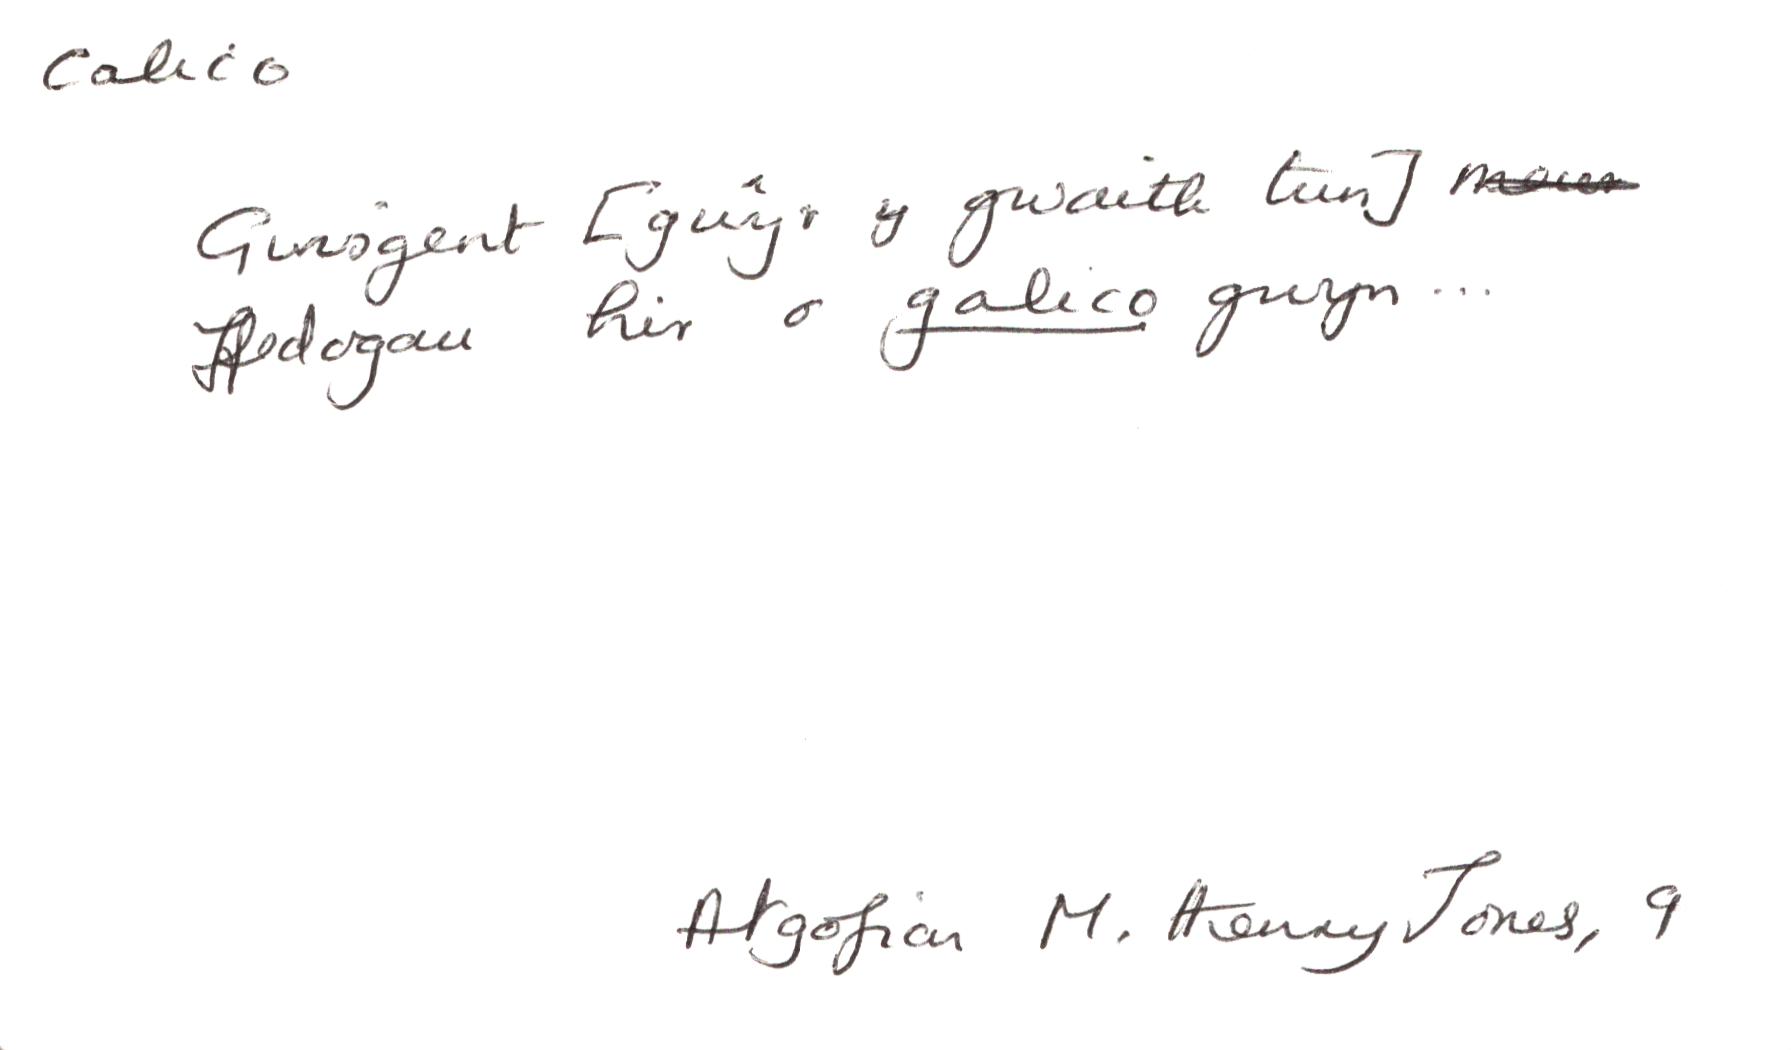 calico
Gwisgent [gwŷr y gwaith tun]
ffedogau hir o galico gwyn...
Atgofion M. Henry Jones, 9